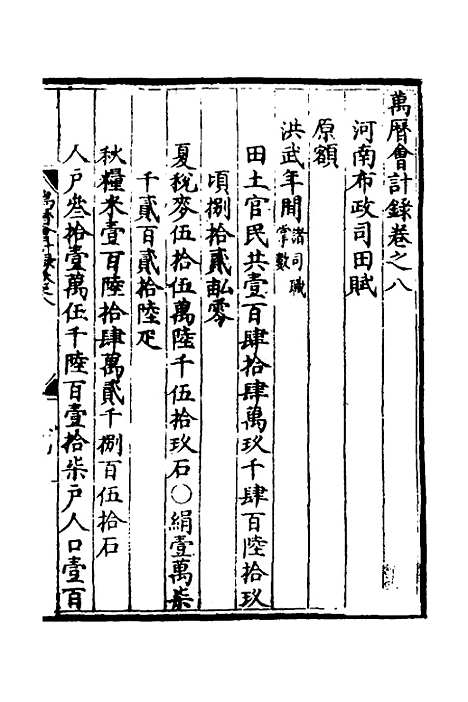 萬曆會計錄卷之八
河南布政司田賦
原額
洪武年間諸司職掌數
田土官民共壹百肆拾肆萬玖千肆百陸拾玖
頃捌拾貳畝零
夏稅麥伍拾伍萬陸千伍拾玖石〇絹壹萬柒
千貳百貳拾陸疋
秋糧米壹百陸拾肆萬貳千捌百伍拾石
人户叁拾壹萬伍千陸百壹拾柒户人口壹百
萬曆會計錄卷之八